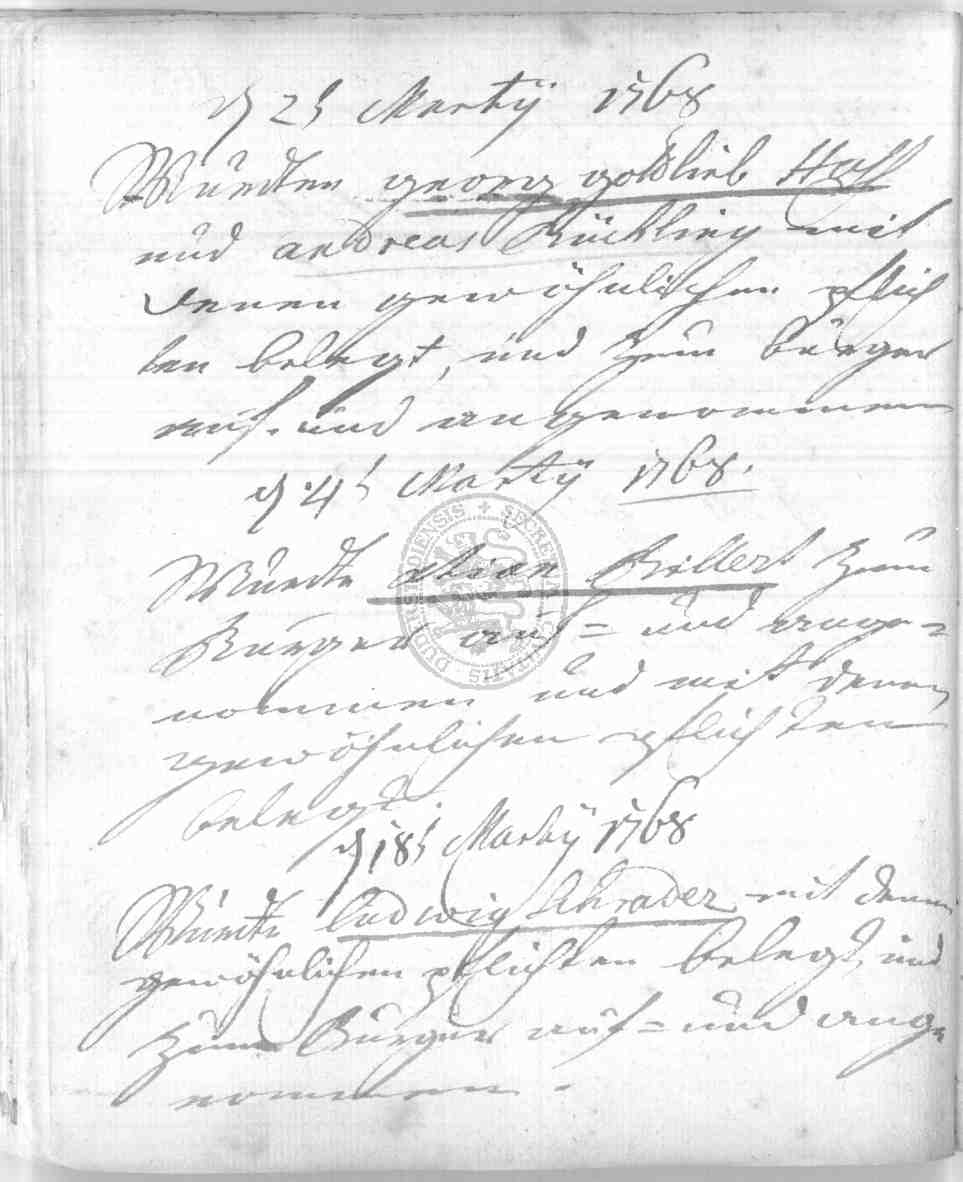 d 2t Martÿ 1768
Würdten georg gottlieb
und andreas Rückling mit
denen gewöhnlichen pflich
ten belegt, und zum bürger
auf- und angenommen
d. 4t Martÿ 1768.
Wurdte zum
Bürger auf= und ange=
nommen und mit denen
gewöhnlichen pflichten
belegt.
d 18t Martÿ 1768
Würdte ludwig schrader mit denen
gewöhnlichen pflichten belegt, und
zum Bürger auf= und ange
nommen.